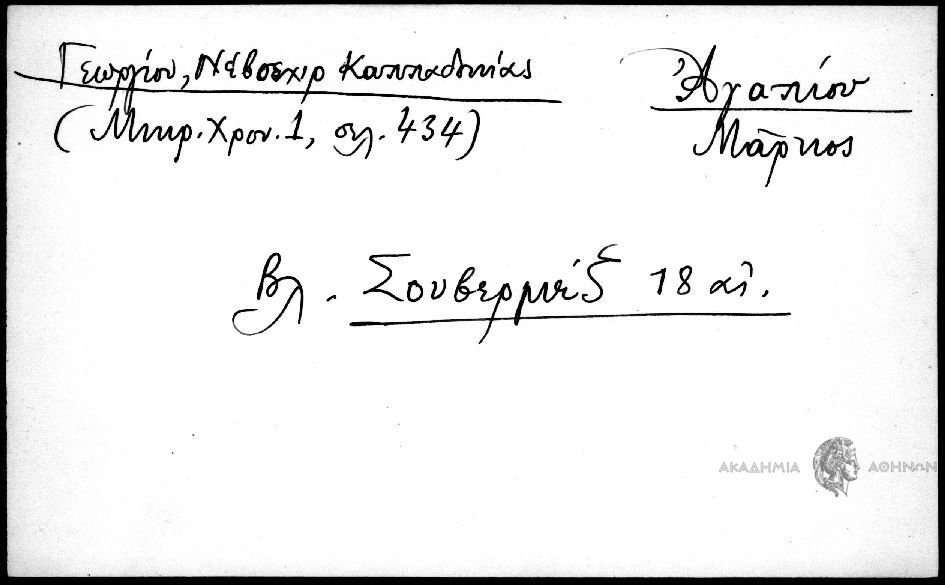 Γεωργίου, Νέβσεχιρ Καππαδοκίας
(Μικρ. Χρον. 1, σελ. 434)
Ἀγαπίου
Μάρκος
Βλ. Σουβερμέζ 18 αἰ.
ΑΚΑΔΗΜΙΑ ΑΘΗΝΩΝ